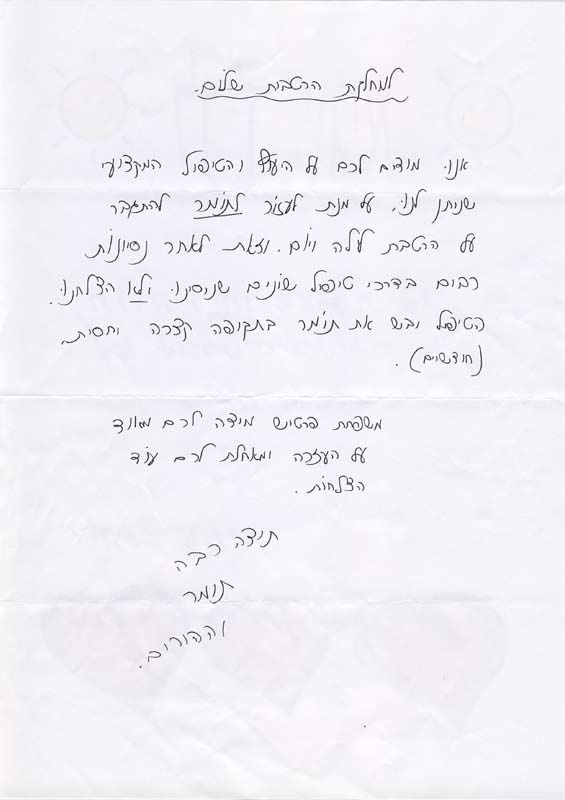 למחלקת הרטבות שלום.
אנו מודים לכם על היעוץ והטיפול המקצועי
שניתן לנו, על מנת לעזור לתומר להתגבר
על הרטבת לילה ויום. וזאת לאחר נסיונות
רבים בדרכי טיפול שונים שניסינו ולא הצלחנו.
הטיפול יבש את תומר בתקופה קצרה יחסית
(חודשיים).
משפחת פרטיש מודה לכם מאוד
על העזרה ומאחלת לכם עוד
הצלחות.
תודה רבה
תומר
וההורים.